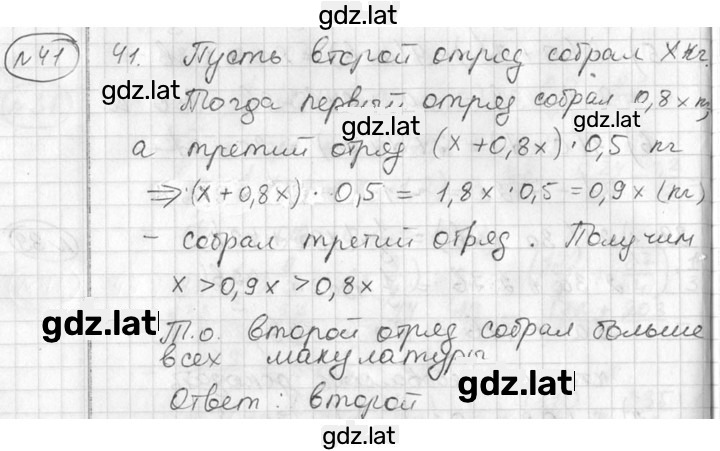 gdz.lat
№41 41. Пусть второй отряд собрал x кг.
gdz.lat
Тогда первый отряд собрал 0,8x кг,
gdz.lat gdz.lat
а третий отряд (x + 0,8x) · 0,5 кг
⇒ (x + 0,8x) · 0,5 = 1,8x · 0,5 = 0,9x (кг)
- собрал третий отряд. Получим
x > 0,9x > 0,8x
gdz.lat
Т.о. второй отряд собрал больше
всех макулатуры
gdz.lat
Ответ: второй
gdz.lat